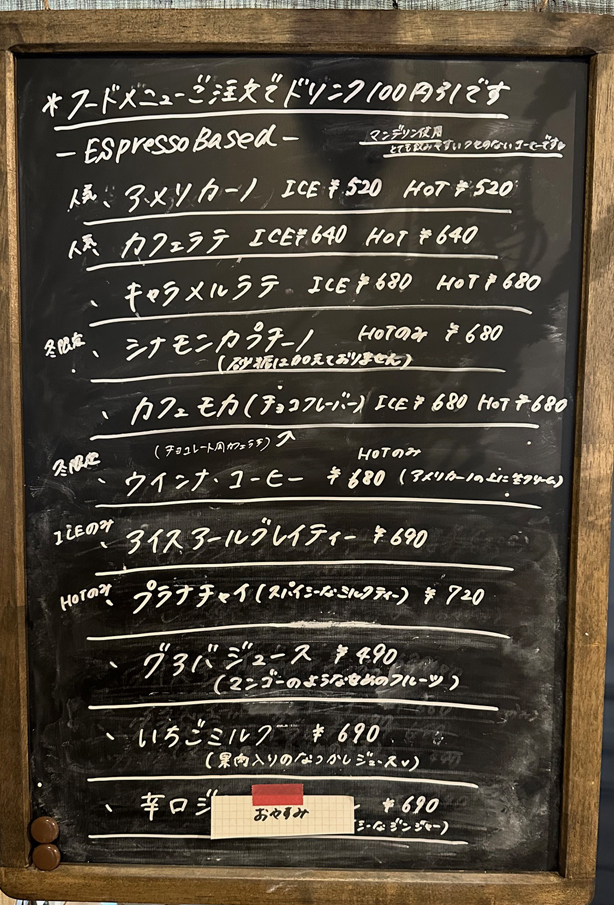 *フードメニューご注文でドリンク100円引です
-ESpressoBased-
マンデリン使用
とても飲みやすいクセのないコーヒーです
人気、アメリカーノ ICE ¥520 HOT ¥520
人気、カフェラテ ICE¥640 HOT ¥640
、キャラメルラテ ICE ¥680 HOT ¥680
冬限定、シナモンカプチーノ HOTのみ ¥680
(砂糖は加えておりません)
、カフェモカ(チョコフレーバー) ICE ¥680 HOT ¥680
(チョコレート風カフェラテ)
冬限定、ウインナ・コーヒー HOTのみ ¥680 (アメリカーノの上に生クリーム)
ICEのみ、アイスアールグレイティー ¥690
HOTのみ、プラナチャイ(スパイシーなミルクティー) ¥720
、グァバジュース ¥490
(マンゴーのような甘めのフルーツ)
、いちごミルク ¥690
(果肉入りのなつかしジュース♥)
、辛口ジ ¥690
おやすみ
シーなジンジャー)